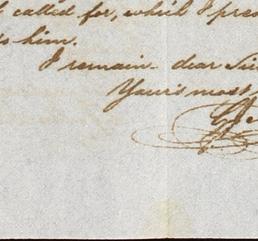 called for, which I
to him.
I remain dear
Yours most